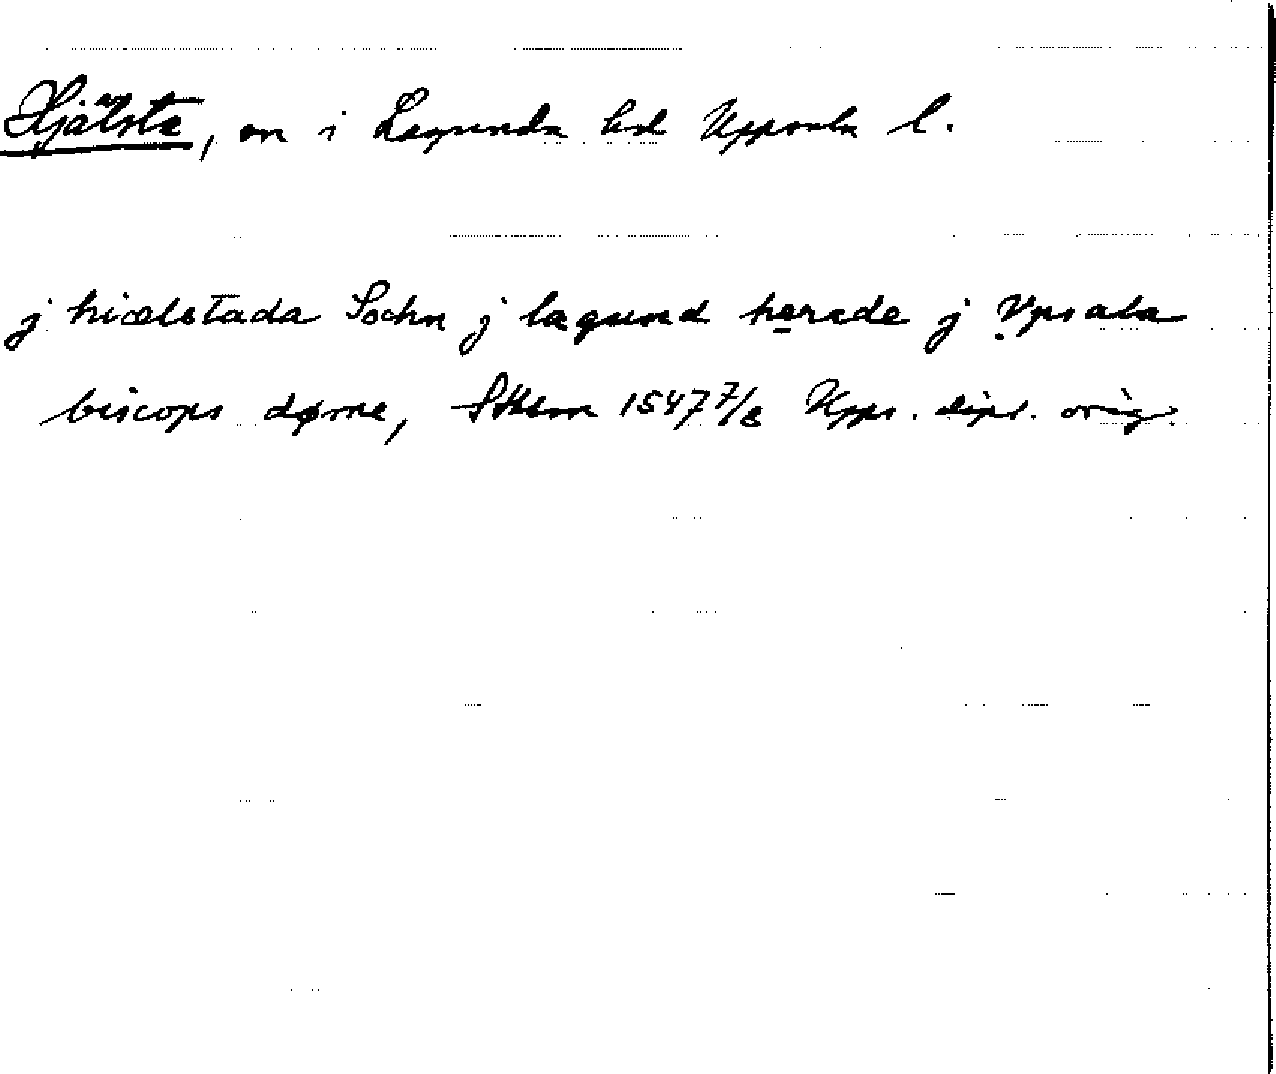 Hjälsta, sn i Lagunda hd Uppsala l.
j hiælstada Sochn j lagund hærade j Vpsala
biscops døme, Sthlm 1547 7/8 Upps. dipl. orig.